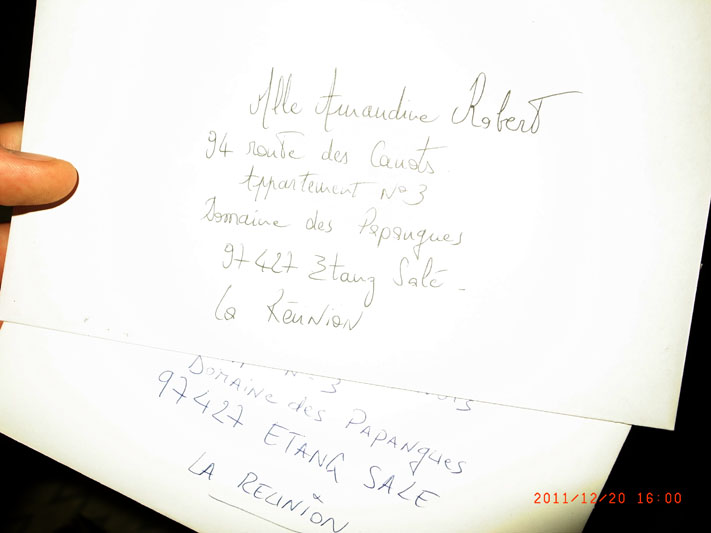 Mlle Amandine Robert
94 route des Canots
Appartement N° 3
Domaine des Papangues
97427 Etang Salé.
La Réunion
N° 3
Domaine des Papangues
97427 ETANG SALE
LA REUNION
2011/12/20 16:00